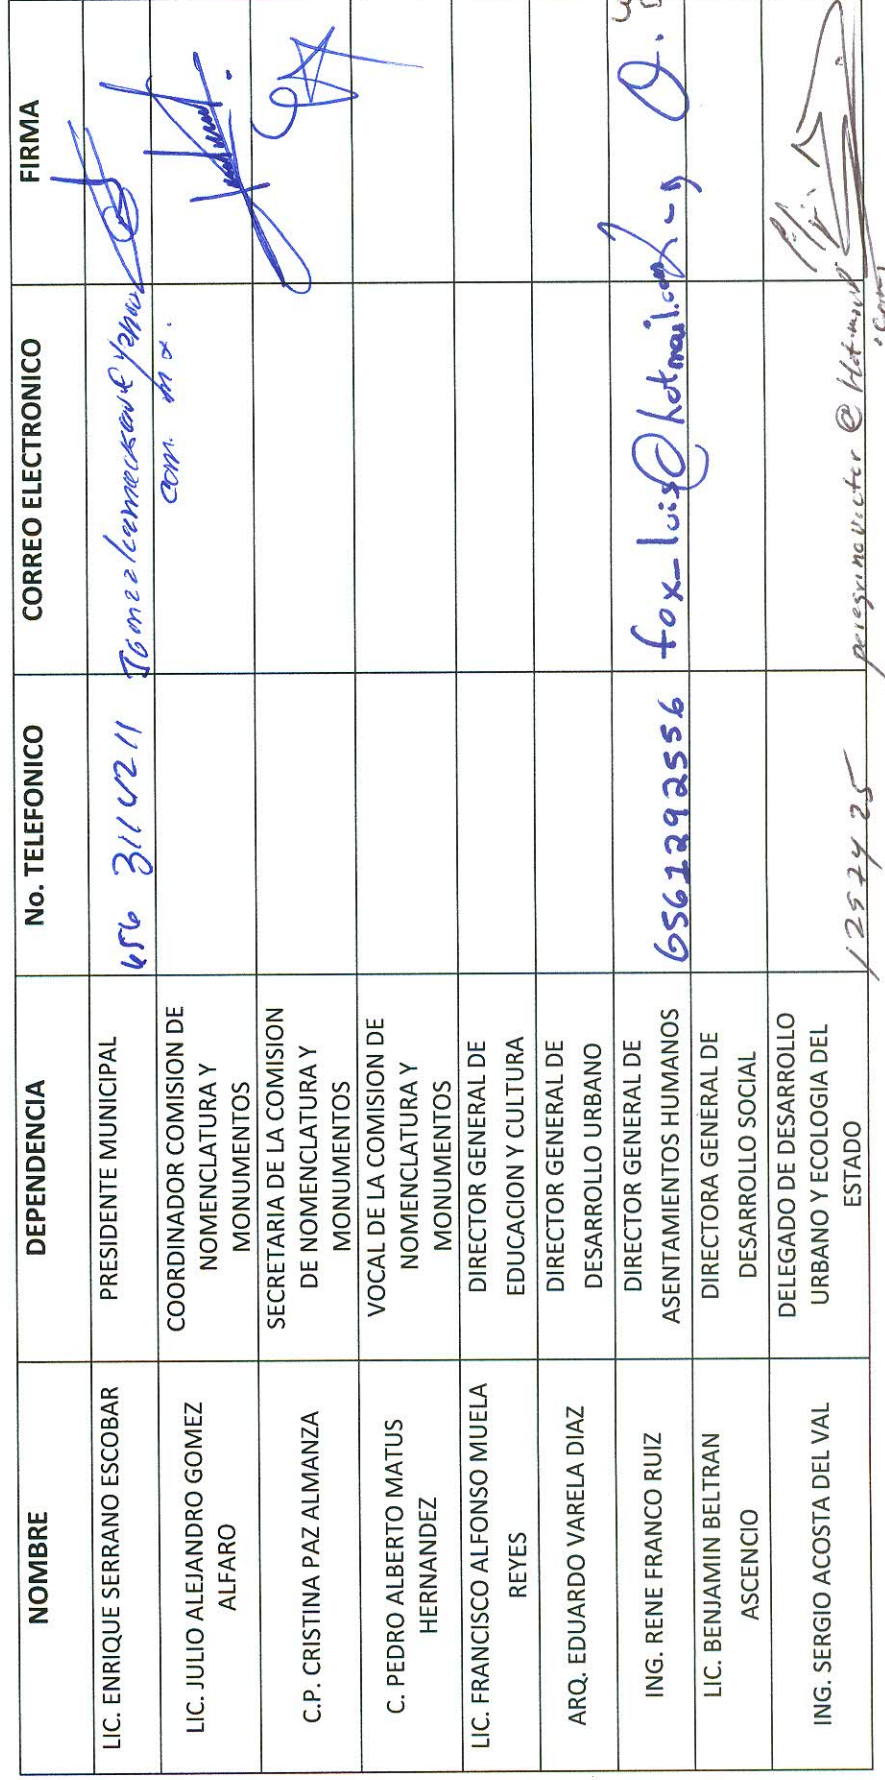 NOMBRE DEPENDENCIA No. TELEFONICO CORREO ELECTRONICO FIRMA
LIC. ENRIQUE SERRANO ESCOBAR PRESIDENTE MUNICIPAL 656 3114211
com. mx.
LIC. JULIO ALEJANDRO GOMEZ
ALFARO
COORDINADOR COMISION DE
NOMENCLATURA Y
MONUMENTOS
C.P. CRISTINA PAZ ALMANZA
SECRETARIA DE LA COMISION
DE NOMENCLATURA Y
MONUMENTOS
C. PEDRO ALBERTO MATUS
HERNANDEZ
VOCAL DE LA COMISION DE
NOMENCLATURA Y
MONUMENTOS
LIC. FRANCISCO ALFONSO MUELA
REYES
DIRECTOR GENERAL DE
EDUCACION Y CULTURA
ARQ. EDUARDO VARELA DIAZ
DIRECTOR GENERAL DE
DESARROLLO URBANO
ING. RENE FRANCO RUIZ
DIRECTOR GENERAL DE
ASENTAMIENTOS HUMANOS
6561292556 fox_luis@hotmail.com
LIC. BENJAMIN BELTRAN
ASCENCIO
DIRECTORA GENERAL DE
DESARROLLO SOCIAL
ING. SERGIO ACOSTA DEL VAL
DELEGADO DE DESARROLLO
URBANO Y ECOLOGIA DEL
ESTADO
peregrinovictor @ Hotmail
.com